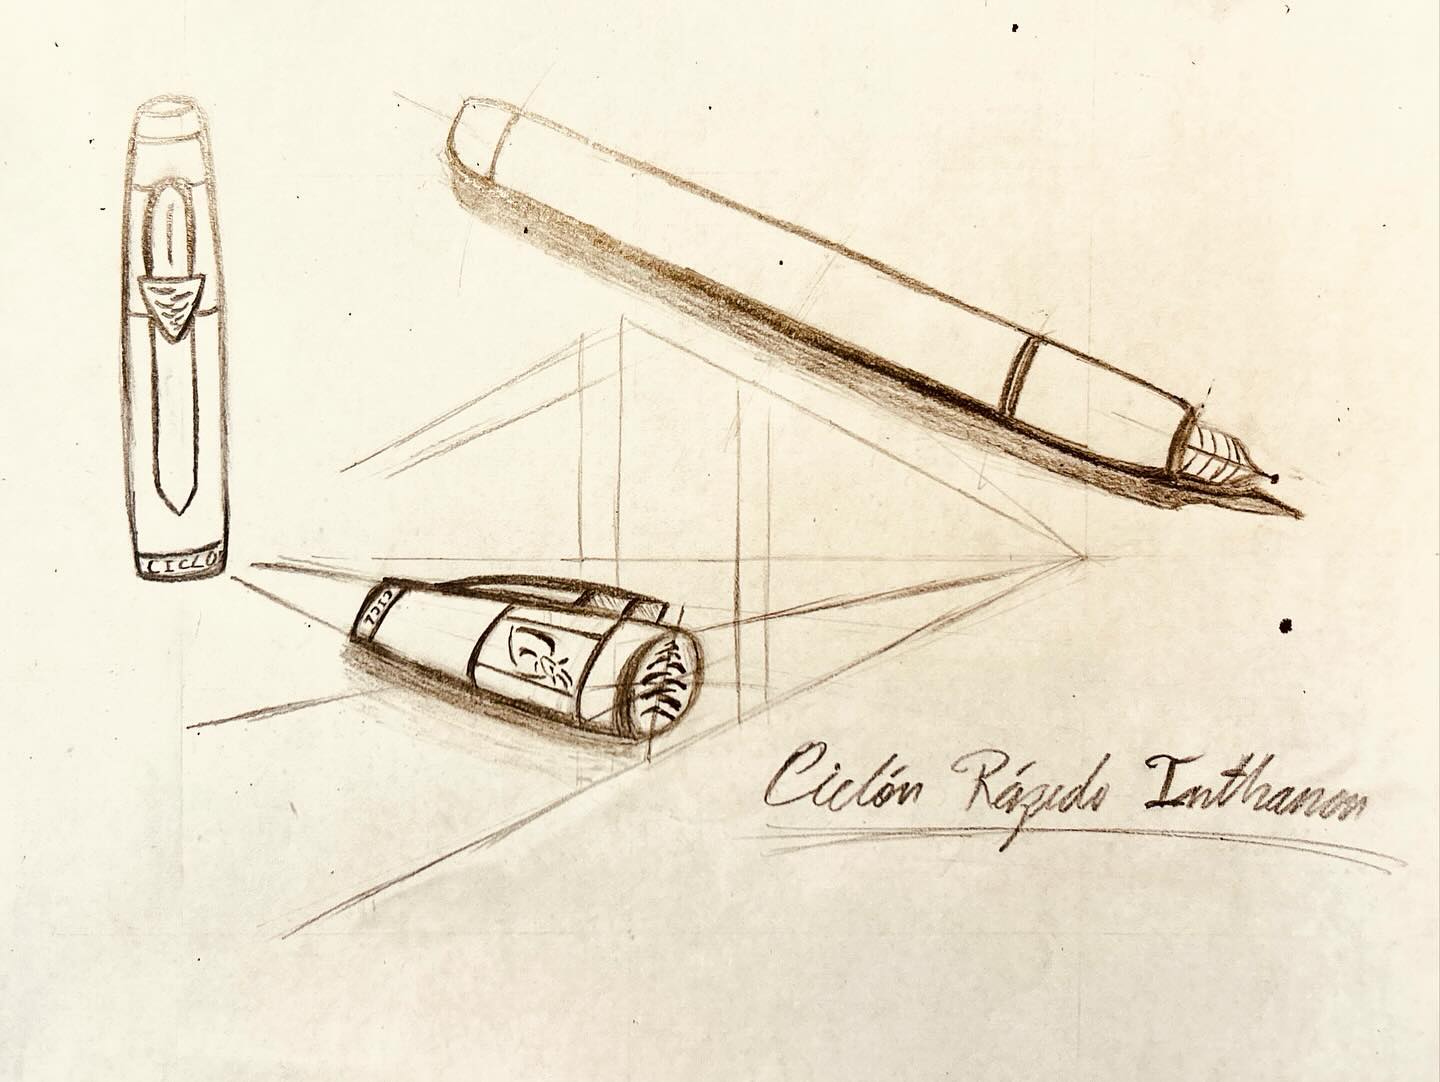 CICLO
CICL
Ciclón Rápido Inthanon